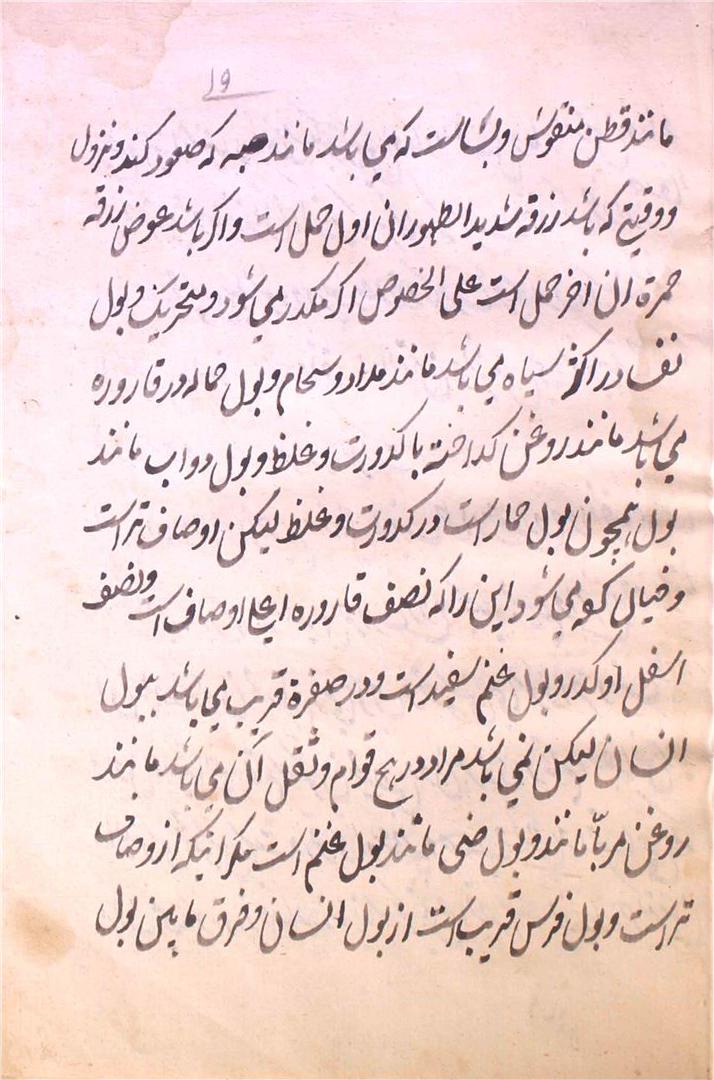 ۱۹
مانند قطن منقوش وبسا است که می باشد مانند حبه که صعود کند ونزول
ووقتیکه باشد زرقه شدید الظهور ان اول حمل است واکر باشد عوض زرقه
حمرة ان اخر حمل است علی الخصوص اکر مکدر می شود وبتحریک وبول
نفسا در اکثر سیاه می باشد مانند مداد وسخام وبول حماله در قاروره
می باشد مانند روغن کداخته با کدورت وغلظ وبول دواب مانند
بول همچون بول حمار است در کدورت وغلظ لیکن او صاف تر است
وخیال کو می شود این را که نصف قاروره اعلی او صاف است ونصف
اسفل او کدر وبول غنم سفید است ودر صفرة قریب می باشد ببول
انسان لیکن نمی باشد مر او در هیچ قوام وثفل آن می باشد مانند
روغن مر با مانند وبول ضبی مانند بول غنم است مکر اینکه از و صاف
تر است وبول فرس قریب است از بول انسان وفرق مابین بول